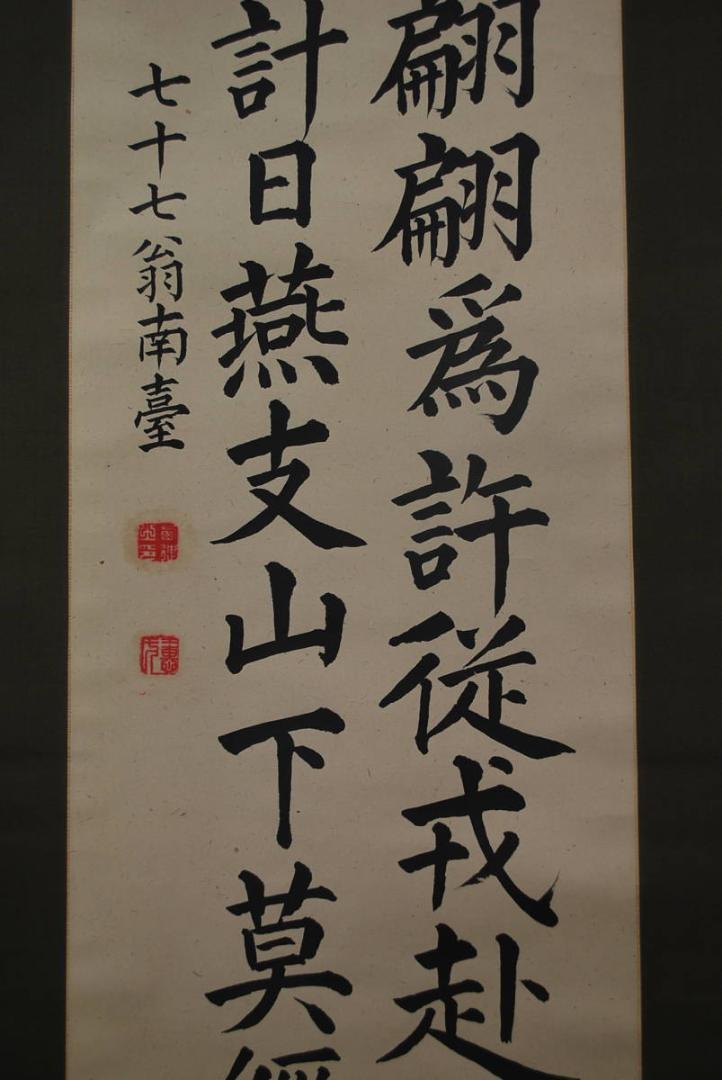 翩翩爲許従戎赴
計日燕支山下莫
七十七翁南臺